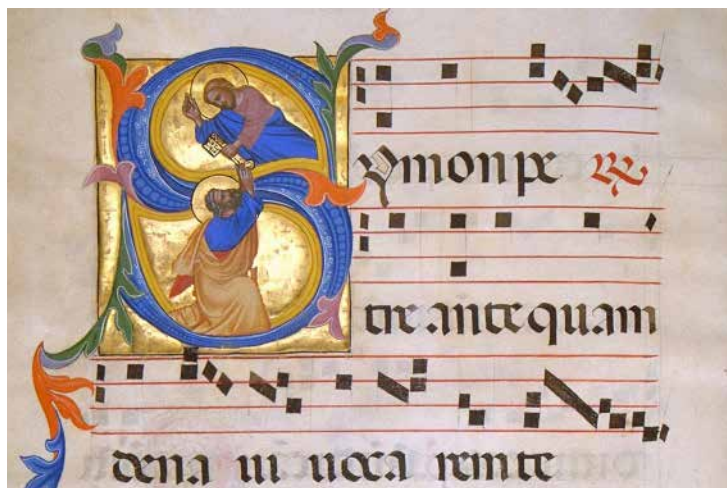 Symon pe ℟
tre ante quam
dena ui uoca remte